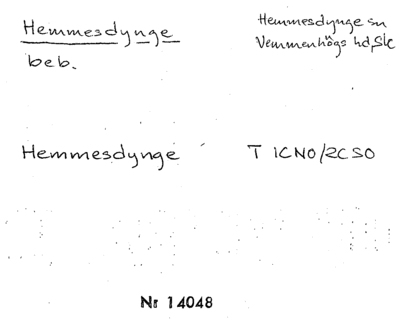 Hemmesdynge
beb.
Hemmesdynge sn
Vemmenhögs hd, Sk
Hemmesdynge T 1CNO/2CSO
Nr 14048